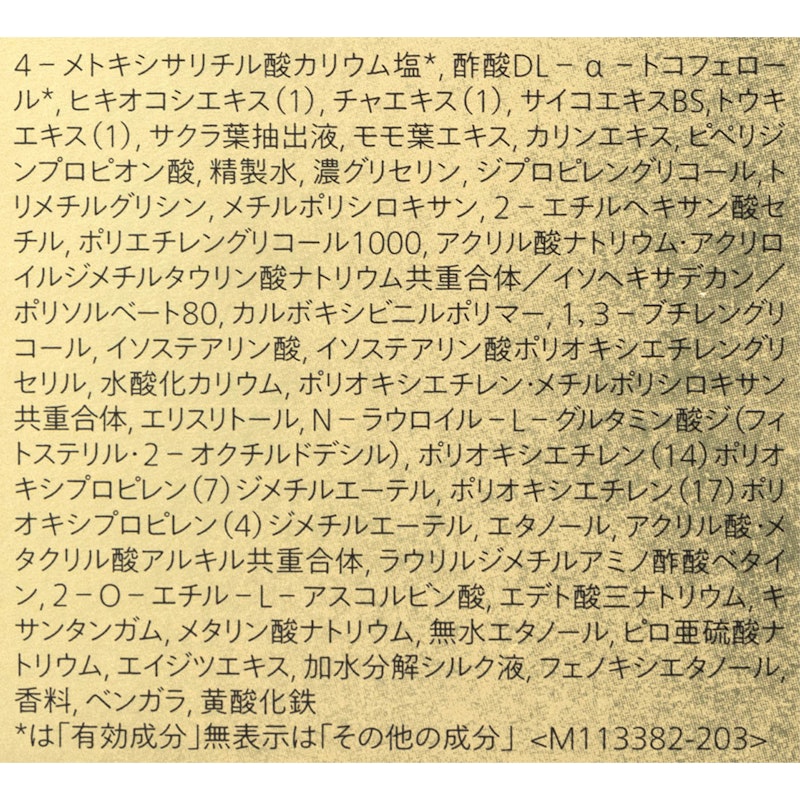 4－メトキシサリチル酸カリウム塩*, 酢酸DL－α－トコフェロー
ル*, ヒキオコシエキス(1), チャエキス(1), サイコエキスBS,トウキ
エキス(1), サクラ葉抽出液, モモ葉エキス, カリンエキス, ピペリジ
ンプロピオン酸, 精製水, 濃グリセリン, ジプロピレングリコール,ト
リメチルグリシン, メチルポリシロキサン, 2－エチルヘキサン酸セ
チル, ポリエチレングリコール1000, アクリル酸ナトリウム・アクリロ
イルジメチルタウリン酸ナトリウム共重合体／イソヘキサデカン／
ポリソルベート80, カルボキシビニルポリマー, 1, 3－ブチレングリ
コール, イソステアリン酸, イソステアリン酸ポリオキシエチレングリ
セリル, 水酸化カリウム, ポリオキシエチレン・メチルポリシロキサン
共重合体, エリスリトール, N－ラウロイル－L－グルタミン酸ジ(フィ
トステリル・2－オクチルドデシル), ポリオキシエチレン(14)ポリオ
キシプロピレン(7)ジメチルエーテル, ポリオキシエチレン(17)ポリ
オキシプロピレン(4)ジメチルエーテル, エタノール, アクリル酸・メ
タクリル酸アルキル共重合体, ラウリルジメチルアミノ酢酸ベタイ
ン, 2－O－エチル－L－アスコルビン酸, エデト酸三ナトリウム, キ
サンタンガム, メタリン酸ナトリウム, 無水エタノール, ピロ亜硫酸ナ
トリウム, エイジツエキス, 加水分解シルク液, フェノキシエタノール,
香料, ベンガラ, 黄酸化鉄
*は「有効成分」無表示は「その他の成分」 <M113382-203>